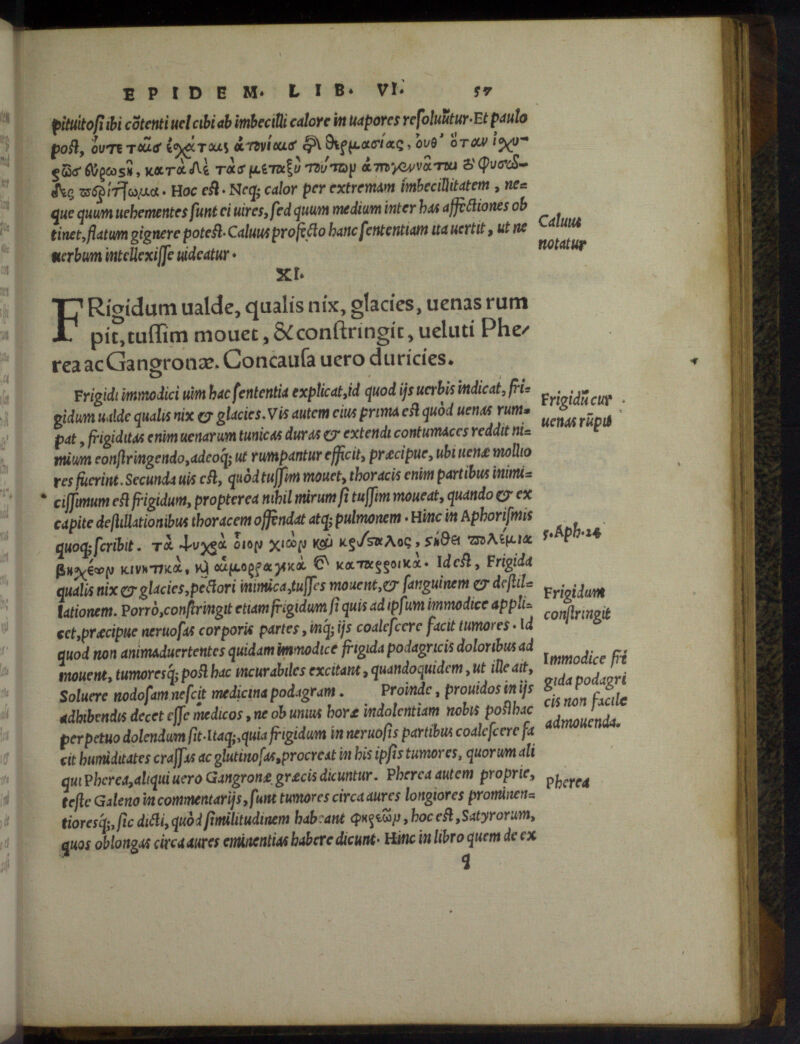 EPIDEM. LIB. VI. 57
pituitosi ibi cōtenti uel cibi ab imbecilli calore in uapores resoluūtur. Et paulo
post, οὔτε τοῖς ἐσχάτοις
Hoc est. Neq; calor per extremam imbecillitatem, ne=
que quum uehementes sunt ei uires, sed quum medium inter has affectiones ob
tinet, flatum gignere potest. Caluus profecto hanc sententiam ita uertit, ut ne
uerbum intellexisse uideatur.
Caluus
notatur
XI.
FRigidum ualde, qualis nix, glacies, uenas rum
pit, tussim mouet, & constringit, ueluti Phe/
rea ac Gangronæ. Concausa uero duricies.
Frigidi immodici uim hac sententia explicat, id quod ijs uerbis indicat, fri=
gidum ualde qualis nix & glacies. Vis autem eius prima est quòd uenas rum=
pat, frigiditas enim uenarum tunicas duras & extendi contumaces reddit ni=
mium constringendo, adeoq; ut rumpantur efficit, præcipue, ubi uenæ mollio
res fuerint. Secunda uis est, quòd tussim mouet, thoracis enim partibus inimi=
* cissimum est frigidum, propterea nihil mirum si tussim moueat, quando & ex
capite destillationibus thoracem offendat atq; pulmonem. Hinc in Aphorismis
quoq; scribit. τὰ ψυχρὰ οἷον χιὼν καὶ κρύσταλλος, στήθει πολέμια
βηχέων κινητικά, καὶ αἱμορραγικὰ καταρροϊκά. Id est, Frigida
qualis nix & glacies, pectori inimica, tusses mouent, & sanguinem & destil=
lationem. Porrò, constringit etiam frigidum si quis ad ipsum immodice appli=
cet, præcipue neruosas corporis partes, inq; ijs coalescere facit tumores. Id
quod non animaduertentes quidam immodice frigida podagricis doloribus ad
mouent, tumoresq; post hac incurabiles excitant, quandoquidem, ut ille ait,
Soluere nodosam nescit medicina podagram. Proinde, prouidos in ijs
adhibendis decet esse medicos, ne ob unius horæ indolentiam nobis post hac
perpetuo dolendum sit. Itaq;, quia frigidum in neruosis partibus coalescere fa
cit humiditates crassas ac glutinosas, procreat in his ipsis tumores, quorum ali
qui Pherea, aliqui uero Gangronæ græcis dicuntur. Pherea autem proprie,
teste Galeno in commentarijs, sunt tumores circa aures longiores prominen=
tioresq;, sic dicti, quòd similitudinem habeant φηρῶν, hoc est, Satyrorum,
quos oblongas circa aures eminentias habere dicunt. Hinc in libro quem de ex
q
Frigidū cur
uenas rūpit
5. Aph. 24
Frigidum
constringit
Immodice fri
gida podagri
cis non facile
admouenda.
Pherea